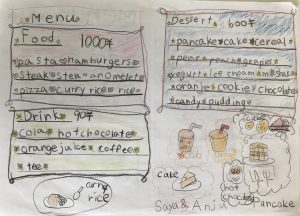 Menu
Food 1000¥
pasta hamburgers
steak stean omelet
pizza curry rice rice
Drink 90¥
cola hot chocolate
orange juice coffee
tea
curry
rice
Dessert 600¥
pancake cake cereal
pear peach grapes
yogurt ice cream milkshake
orange cookie chocolate
candy pudding
cake
hot
chocolate
pancake
Saya & Anju